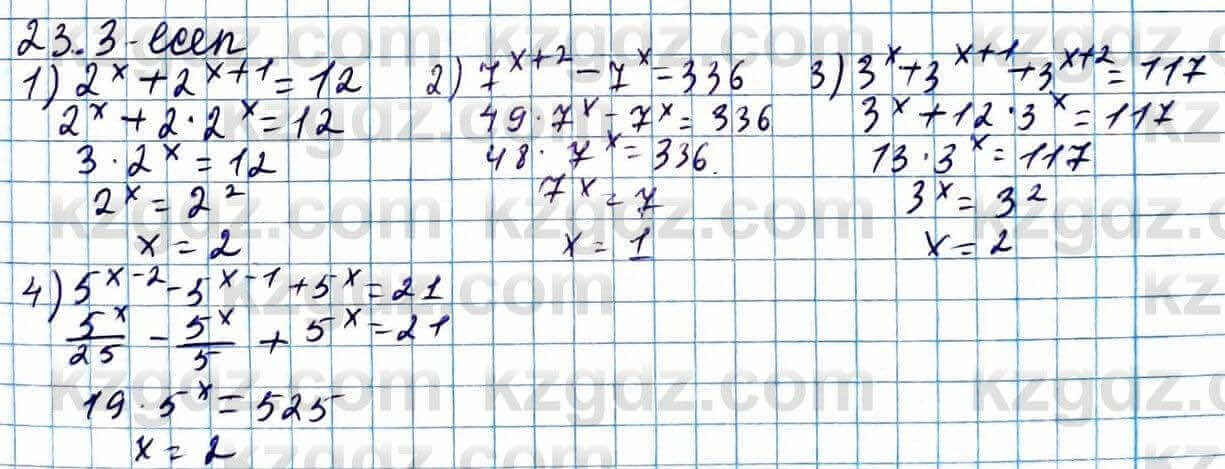 23.3-есеп
1) 2^x + 2^(x+1) = 12
2^x + 2·2^x = 12
3·2^x = 12
2^x = 2^2
x = 2
2) 7^(x+2) - 7^x = 336
49·7^x - 7^x = 336
48·7^x = 336.
7^x = 7
x = 1
3) 3^x + 3^(x+1) + 3^(x+2) = 117
3^x + 12·3^x = 117
13·3^x = 117
3^x = 3^2
x = 2
4) 5^(x-2) - 5^(x-1) + 5^x = 21
5^x/25 - 5^x/5 + 5^x = 21
19·5^x = 525
x = 2
kzgdz.com